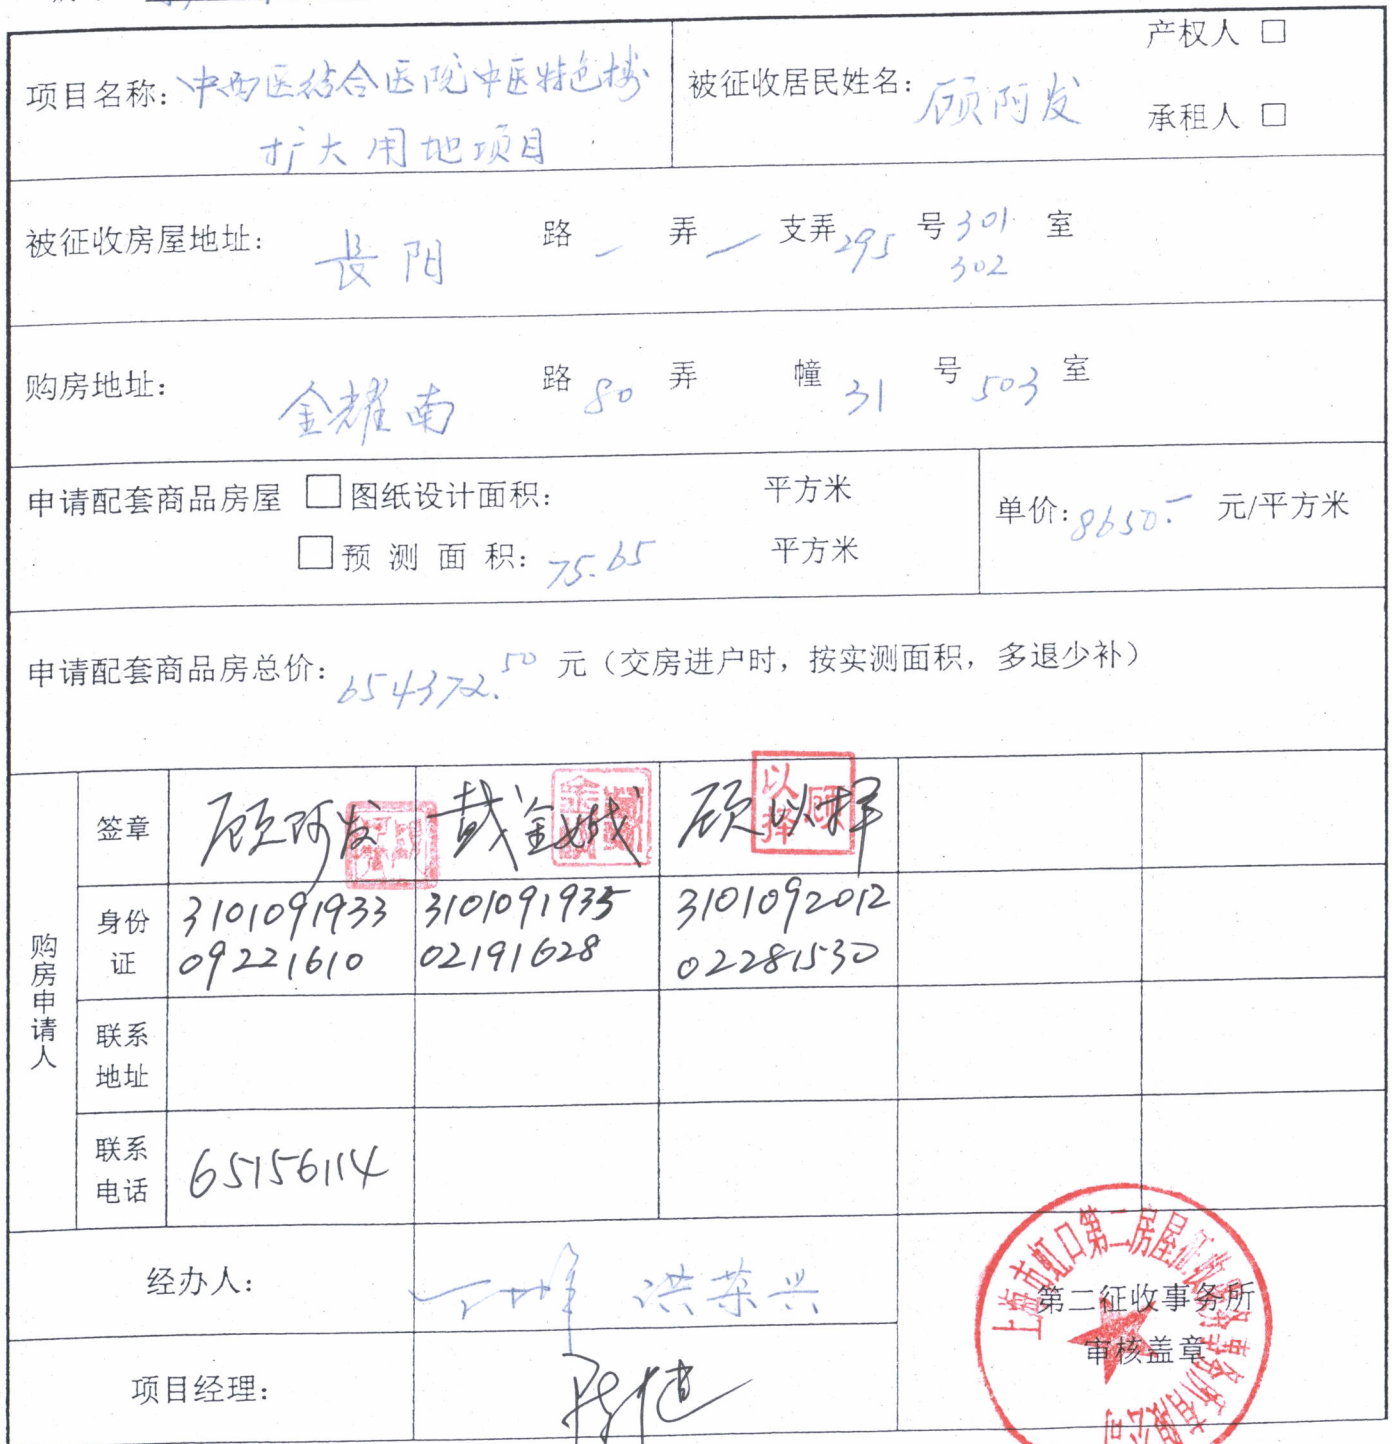 项目名称：中西医结合医院中医特色楼
扩大用地项目
被征收居民姓名：顾阿发
产权人 □
承租人 □
被征收房屋地址：長阳 路 — 弄 — 支弄 295 号 301 室
302
购房地址：金耀南 路 80 弄 幢 31 号 503 室
申请配套商品房屋 □图纸设计面积： 平方米
□预 测 面 积：75.65 平方米
单价：8650.- 元/平方米
申请配套商品房总价：654372.50 元（交房进户时，按实测面积，多退少补）
购房申请人
签章 顾阿发 戴金娥 顾以择
以择 顾
身份证
310109193309221610
310109193502191628
310109201202281530
联系地址
联系电话 65156114
经办人： 洪荣兴
项目经理：
第二征收事务所
审核盖章
上海市虹口第二房屋征收服务事务所有限公司